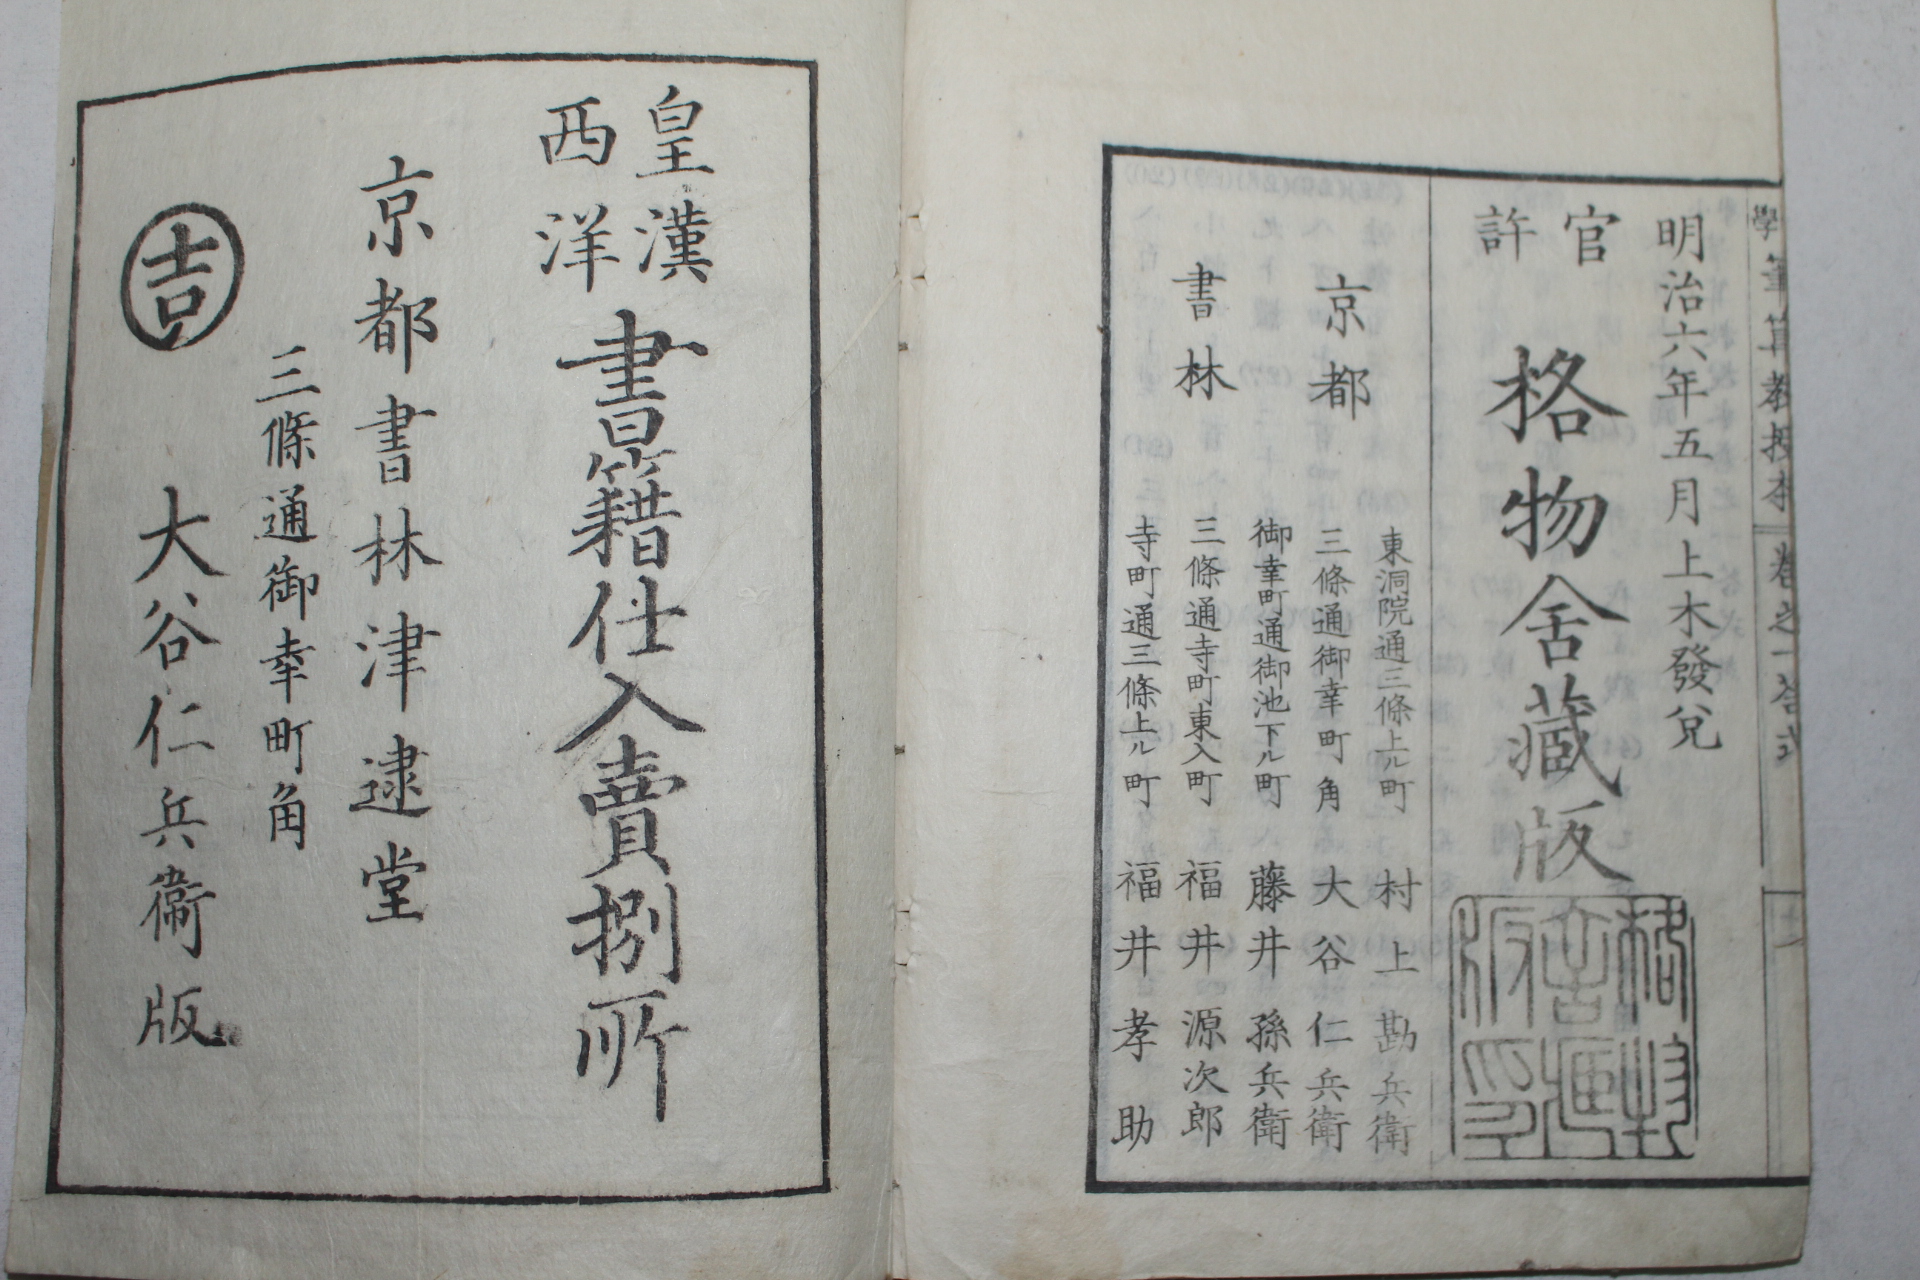 學筆算教授本 卷之一答式
明治六年五月上木發兌
官許
格物舍藏版
格物舍藏版印
京都
書林
東洞院通三條上ル町 村上勘兵衛
三條通御幸町角 大谷仁兵衛
御幸町通御池下ル町 藤井孫兵衛
三條通寺町東入町 福井源次郎
寺町通三條上ル町 福井孝助
皇漢
西洋
書籍仕入賣捌所
京都書林津逮堂
三條通御幸町角
吉
大谷仁兵衞版